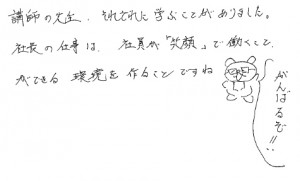 講師の先生、それぞれに学ぶことがありました。
社長の仕事は、社員が「笑顔」で働くこと
ができる環境を作ることですね
がんばるぞ!!